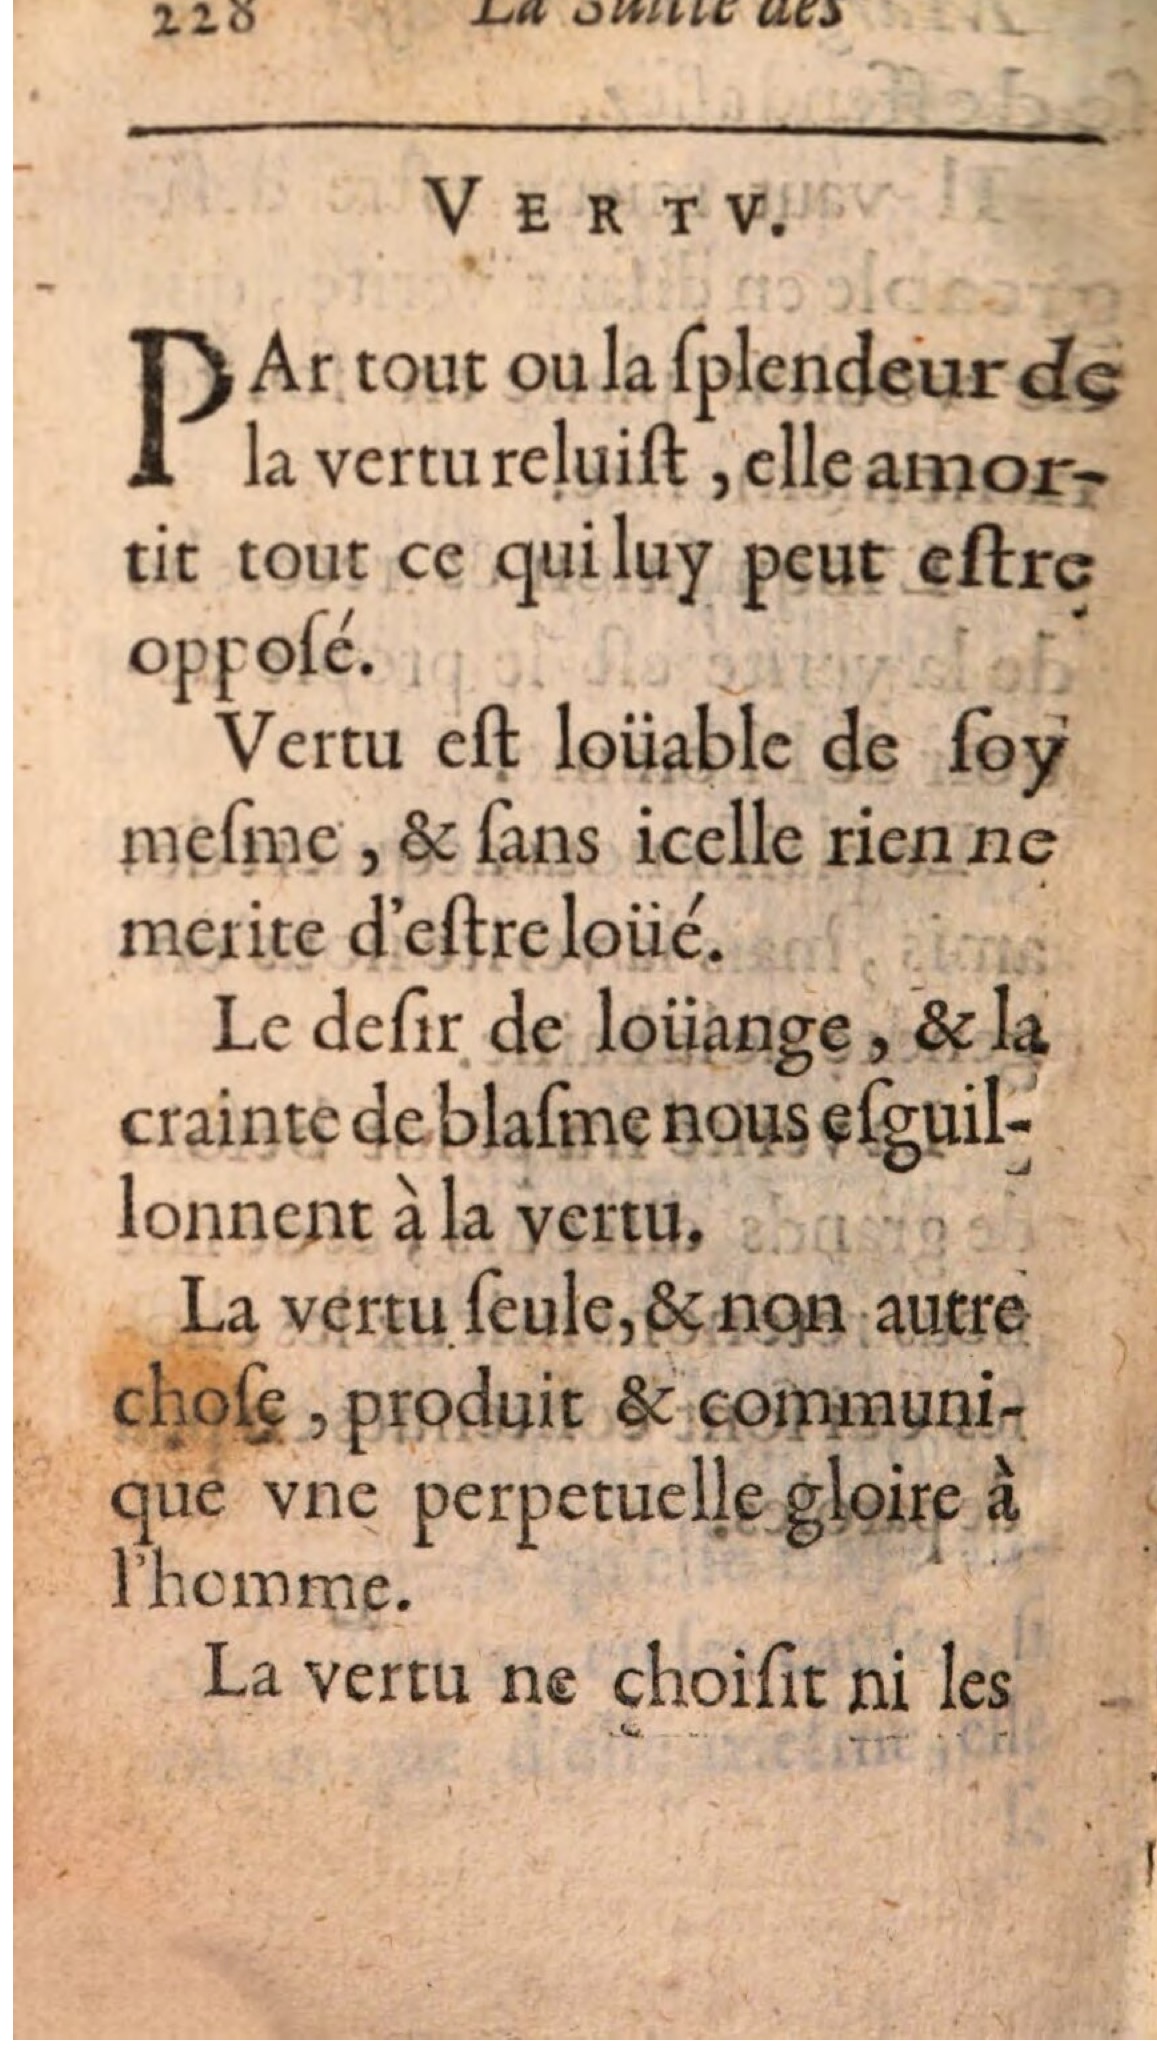 228 La Suitte des
VERTV.
PAr tout ou la ſplendeur de
la vertu reluiſt, elle amor-
tit tout ce qui luy peut eſtre
oppoſé.
Vertu eſt loüable de ſoy
meſme, & ſans icelle rien ne
merite d'eſtre loüé.
Le deſir de loüange, & la
crainte de blaſme nous eſguil-
lonnent à la vertu.
La vertu ſeule, & non autre
choſe, produit & communi-
que vne perpetuelle gloire à
l'homme.
La vertu ne choiſit ni les